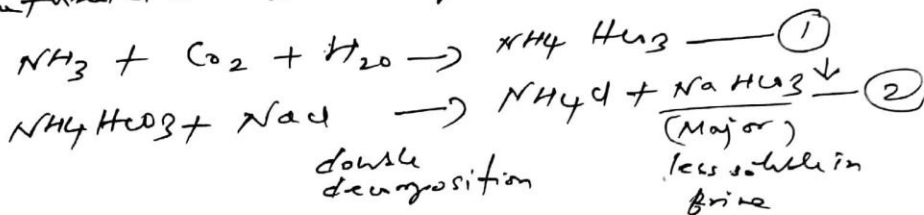 NH3 + CO2 + H2O → NH4 HCO3 — ①
NH4HCO3 + NaCl → NH4Cl + NaHCO3 ↓ — ②
double (Major)
decomposition less soluble in
brine